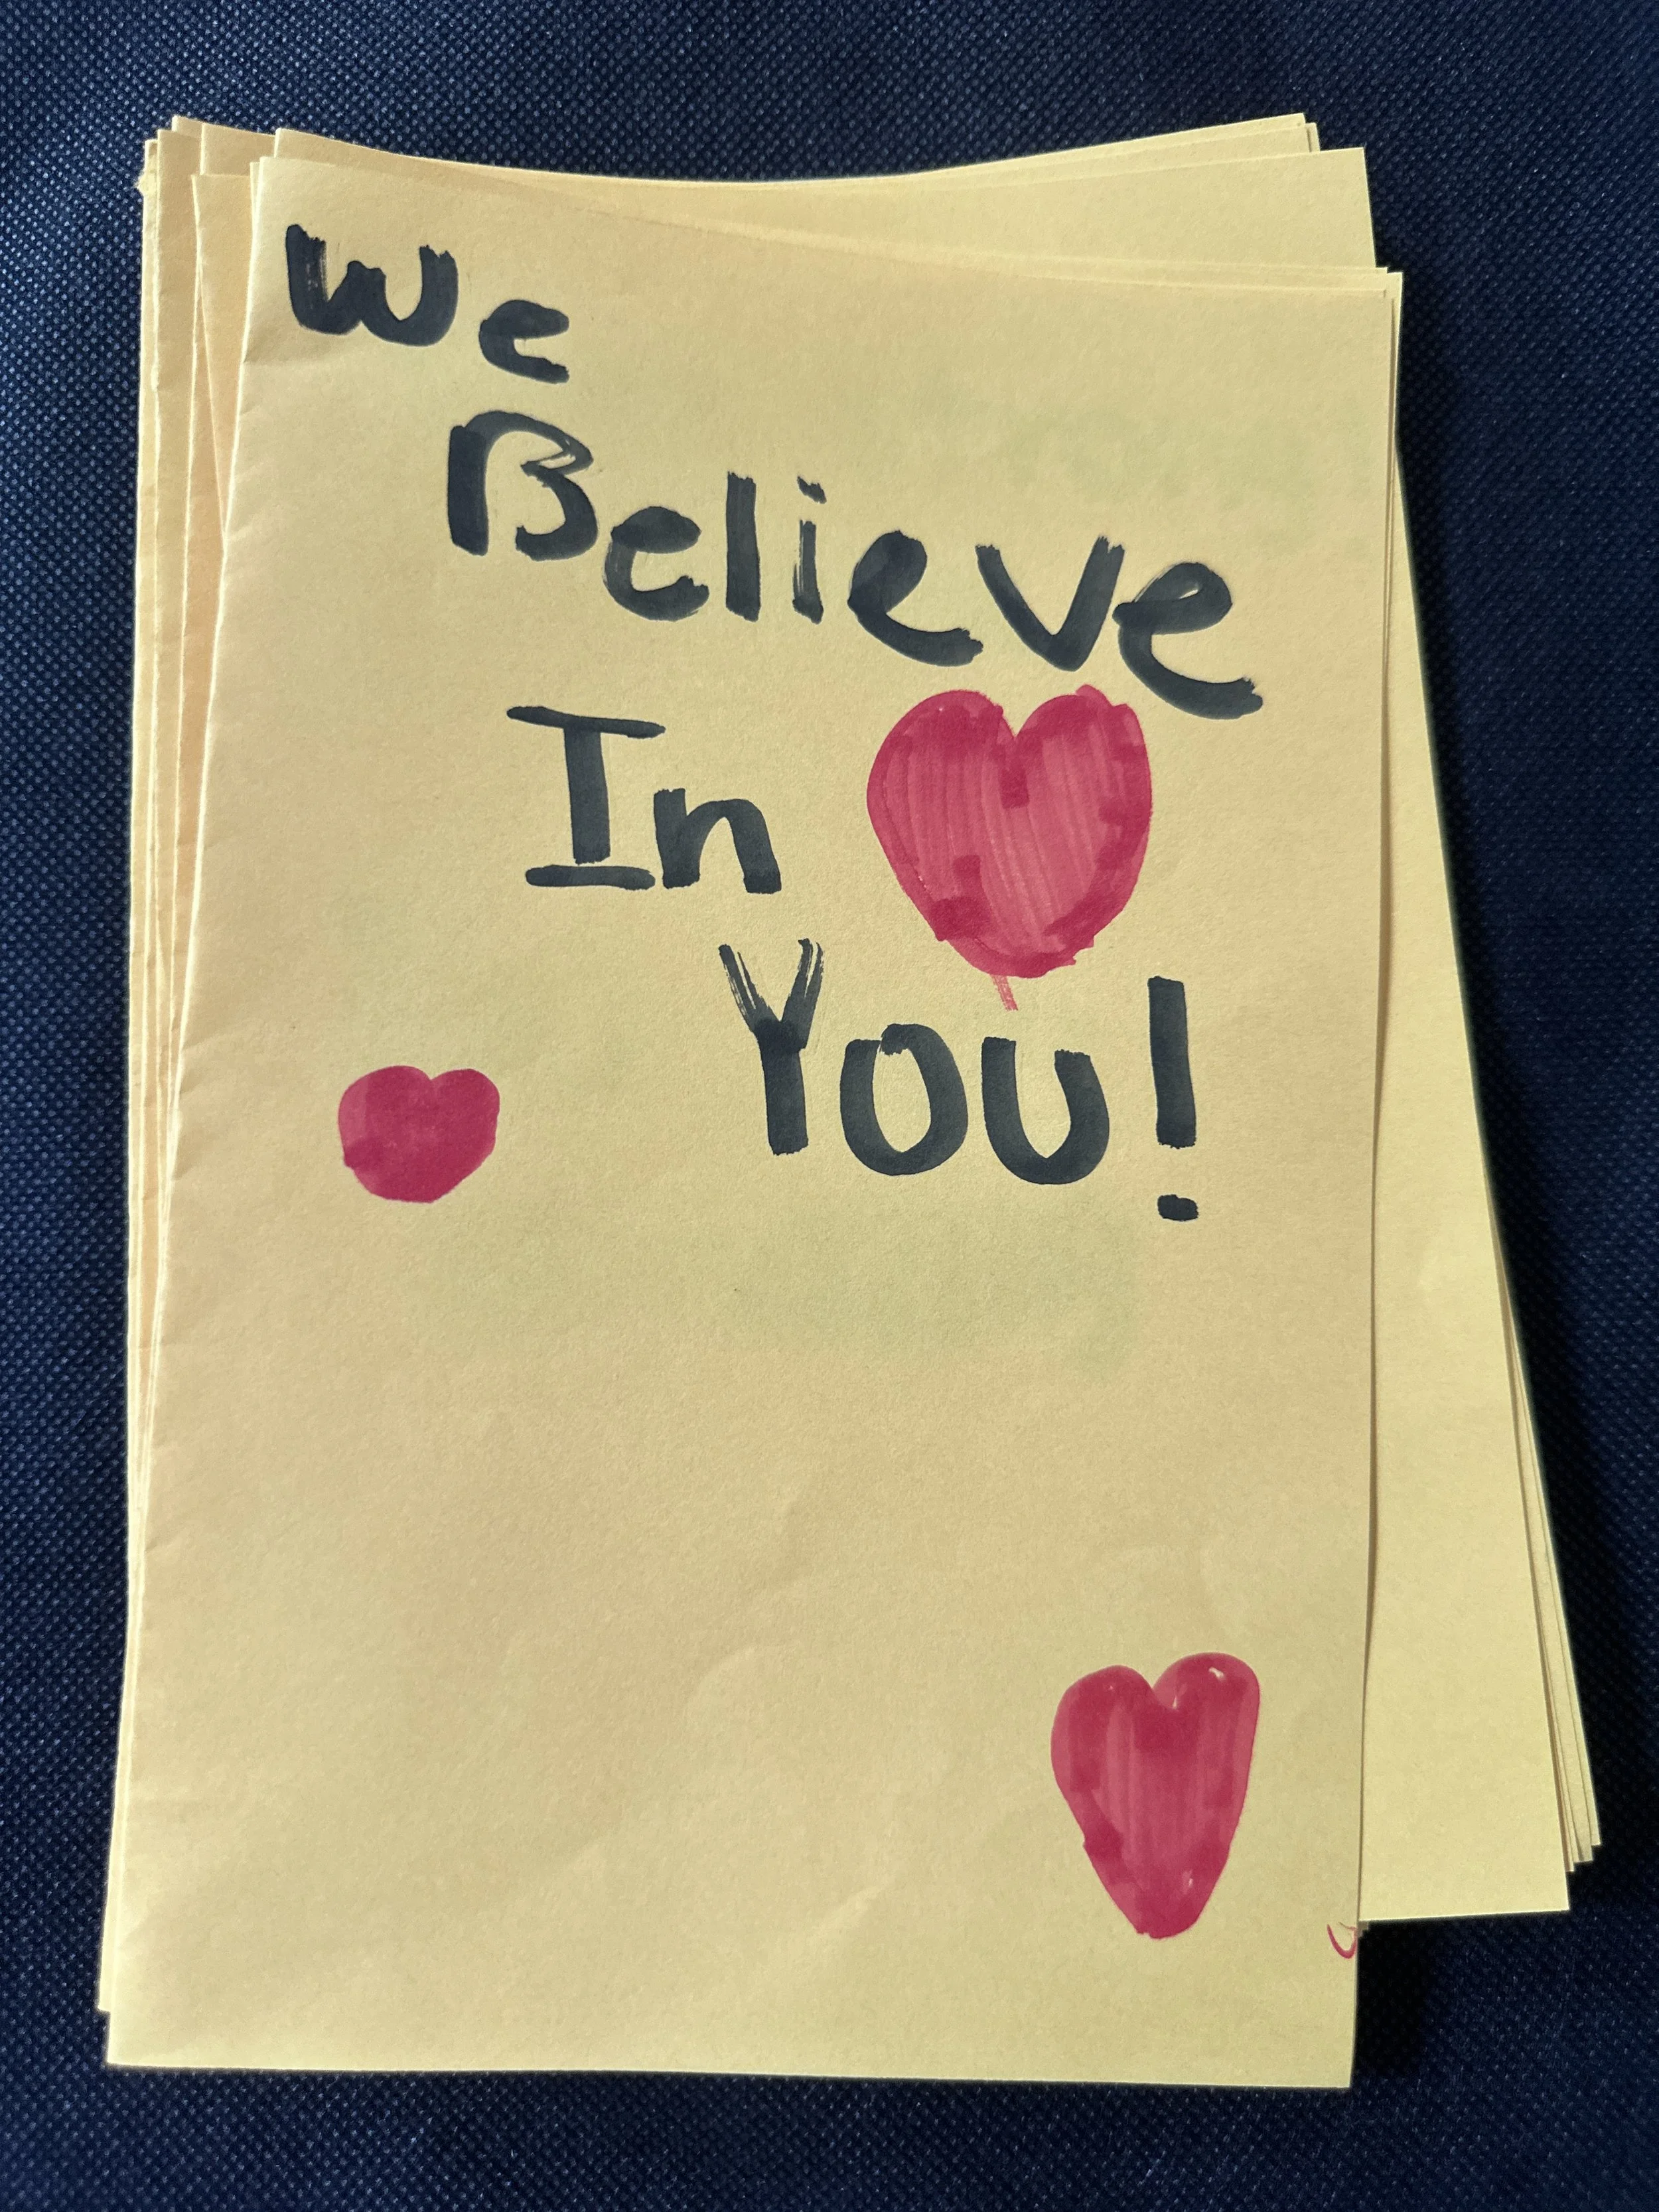 We
Believe
In
You!